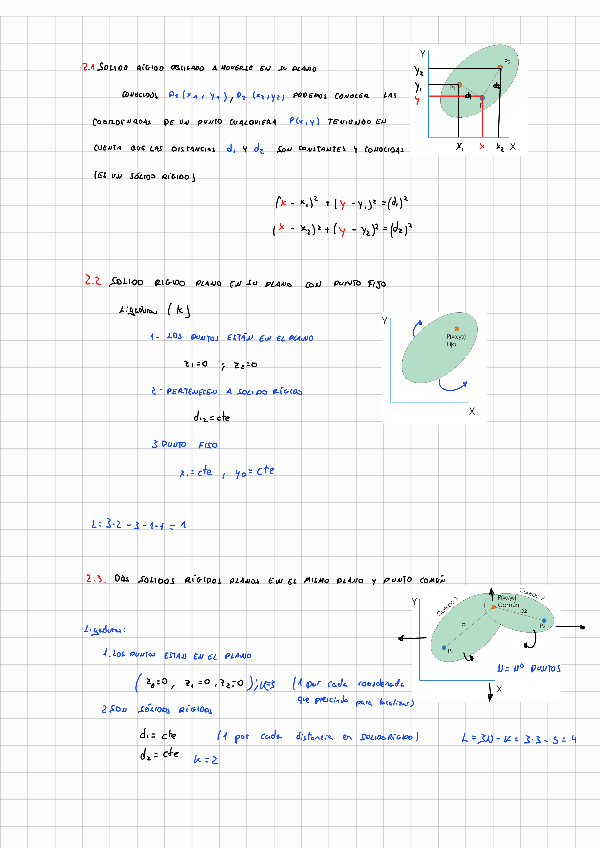 2.1 SOLIDO RÍGIDO OBLIGADO A MOVERSE EN SU PLANO
CONOCIDOS P1 (x1, y1), P2 (x2, y2) PODEMOS CONOCER LAS
COORDENADAS DE UN PUNTO CUALQUIERA P(x,y) TENIENDO EN
CUENTA QUE LAS DISTANCIAS d1 Y d2 SON CONSTANTES Y CONOCIDAS
(ES UN SÓLIDO RÍGIDO)
(x - x1)² + (y - y1)² = (d1)²
(x - x2)² + (y - y2)² = (d2)²
Y
y2
y1
y
x1
x
x2
X
2.2 SOLIDO RIGIDO PLANO EN SU PLANO CON PUNTO FIJO
Ligaduras (k)
1- LOS PUNTOS ESTÁN EN EL PLANO
z1=0 ; z2=0
2- PERTENECEN A SOLIDO RÍGIDO
d12 = cte
3 PUNTO FIJO
x1 = cte , y0 = cte
Y
P(xo,yo)
Fijo
X
L = 3·2 - 3 - 1 - 1 = 1
2.3. DOS SOLIDOS RÍGIDOS PLANOS EN EL MISMO PLANO Y PUNTO COMÚN
Y
Cuerpo 1
P(xo,yo)
Común
Cuerpo 2
d2
P1
P2
X
N = Nº PUNTOS
Ligaduras:
1. LOS PUNTOS ESTAN EN EL PLANO
(z0=0, z1=0, z2=0); k=3 (1 por cada coordenada
que prescindo para localizar)
2 SON SÓLIDOS RÍGIDOS
d1 = cte (1 por cada distancia en SOLIDO RÍGIDO)
d2 = cte k=2
L = 3N - k = 3·3 - 5 = 4